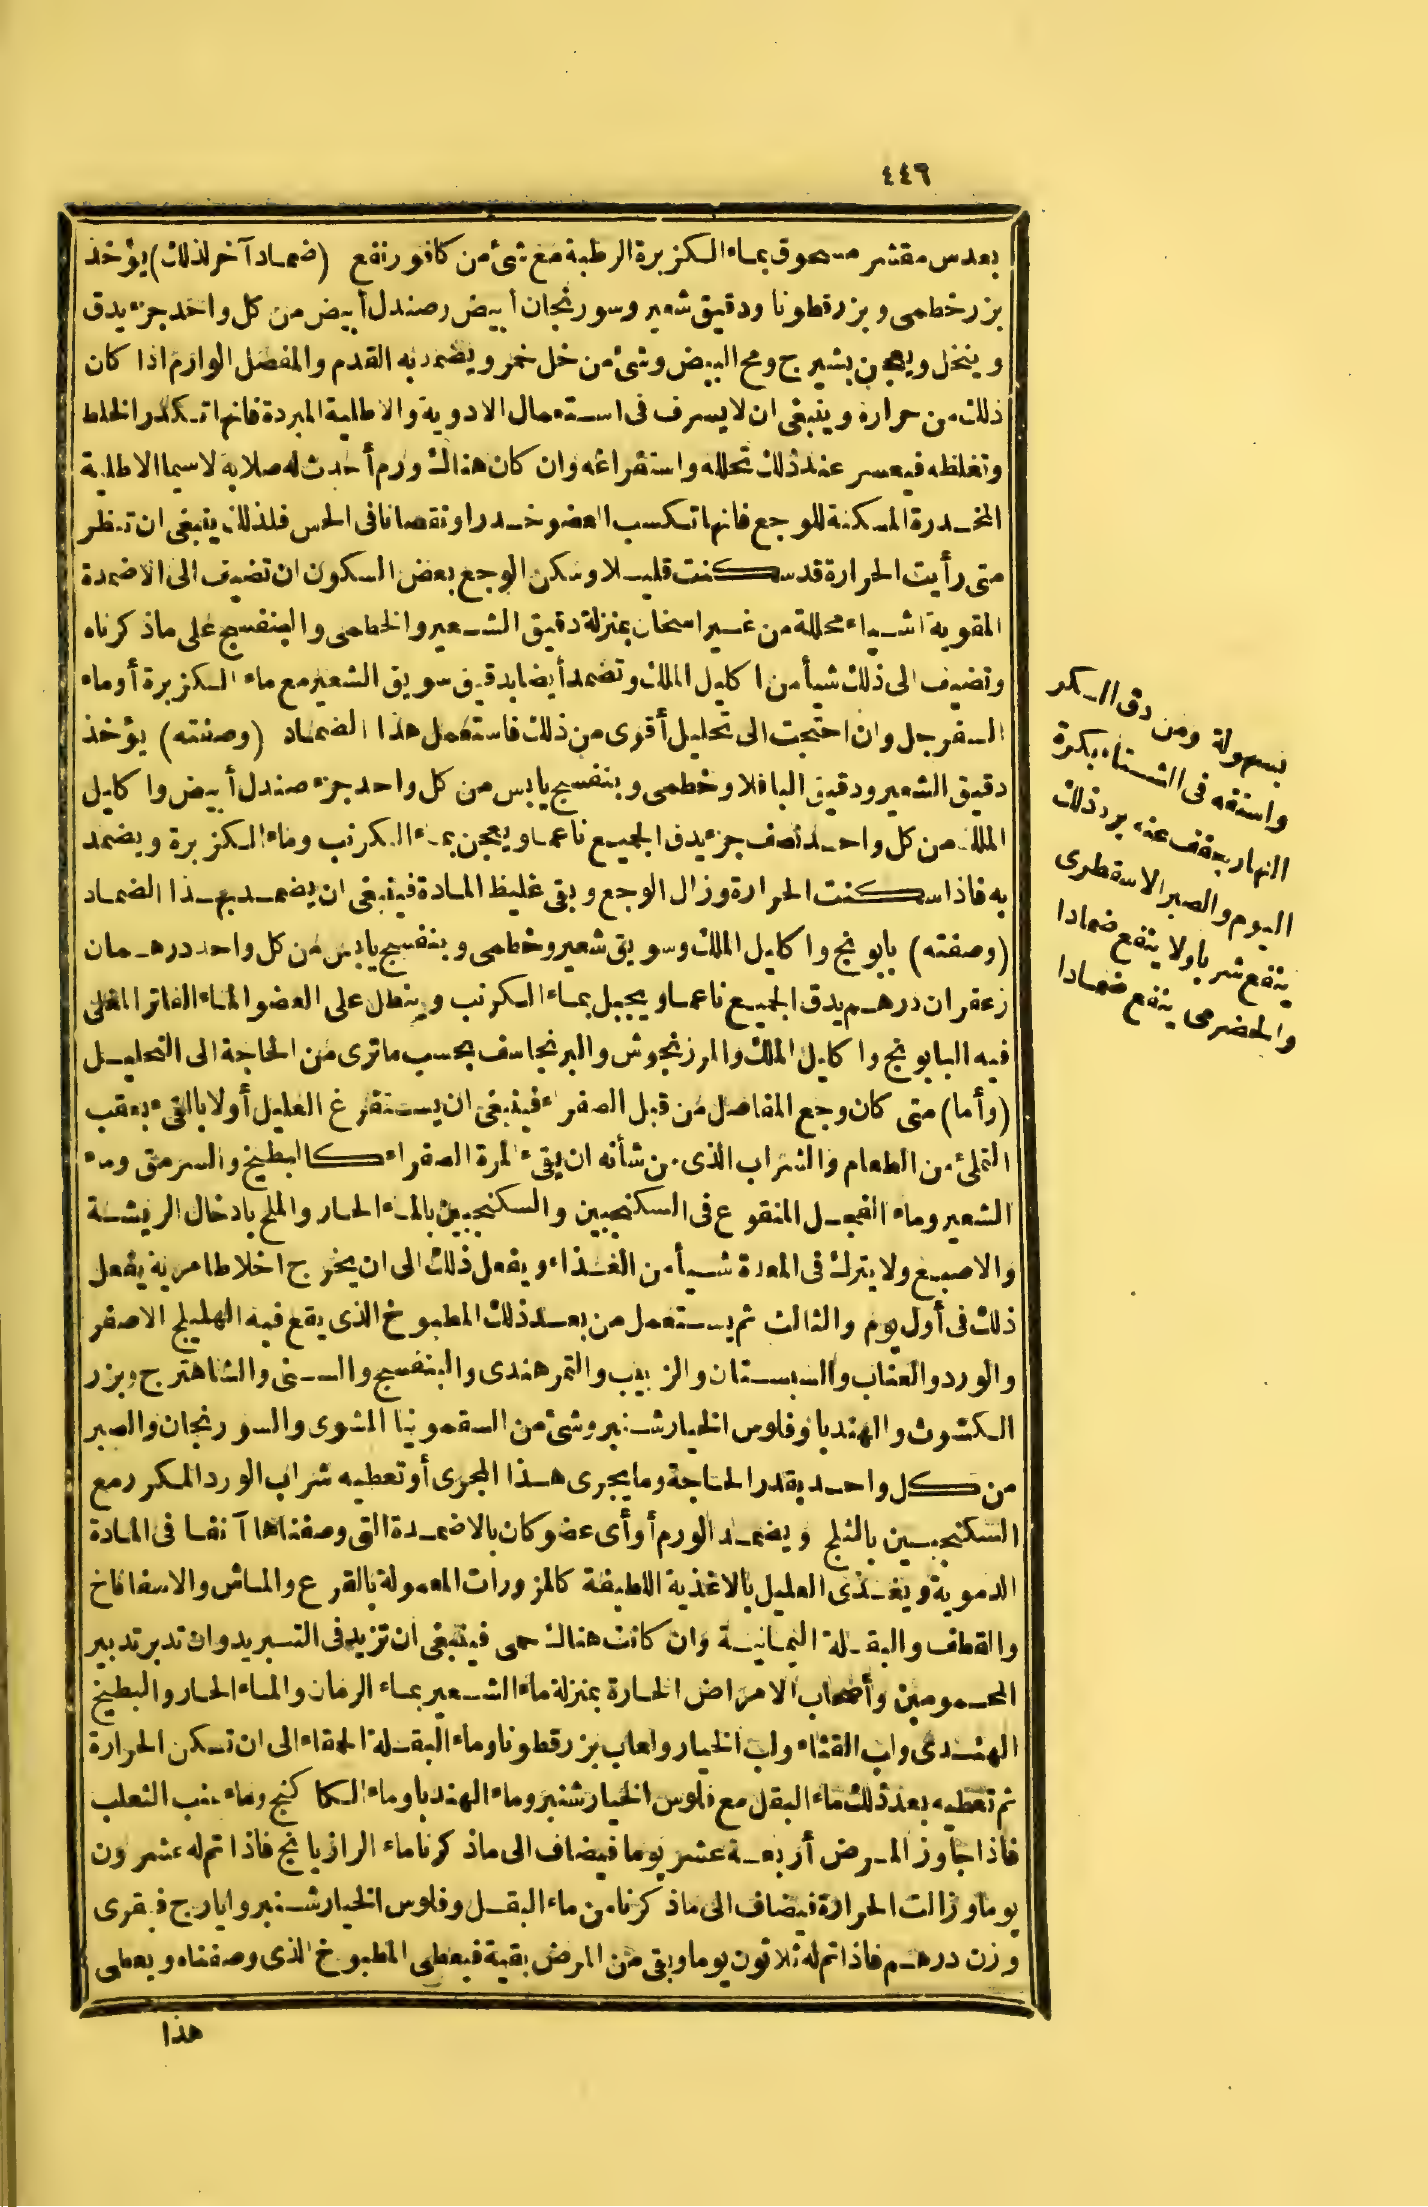 ٤٤٦
بعدس مقشر مسحوق بماء الكزبرة الرطبة مع شئ من كافور نفع (ضماد آخر لذلك) يؤخذ
بزر خطمى وبزر قطونا ودقيق شعير وسورنجان أبيض وصندل أبيض من كل واحد جزء يدق
وينخل ويعجن بشيرج ومح البيض وشئ من خل خمر ويضمد به القدم والمفصل الوارم اذا كان
ذلك من حرارة وينبغى ان لا يسرف فى استعمال الادوية والاطلية المبردة فانها تكدر الخلط
وتغلظه فيعسر عند ذلك تحلله واستفراغه وان كان هناك ورم أحدث له صلابة لاسيما الاطلية
المخدرة المسكنة للوجع فانها تكسب العضو خدرا ونقصانا فى الحس فلذلك ينبغى ان تنظر
متى رأيت الحرارة قد سكنت قليلا وسكن الوجع بعض السكون ان تضيف الى الاضمدة
المقوية اشياء محللة من غير اسخان بمنزلة دقيق الشعير والخطمى والبنفسج على ما ذكرناه
وتضيف الى ذلك شيأ من اكليل الملك وتضمد أيضا بدقيق سويق الشعير مع ماء الكزبرة أو ماء
السفرجل وان احتجت الى تحليل أقوى من ذلك فاستعمل هذا الضماد (وصفته) يؤخذ
دقيق الشعير ودقيق الباقلا وخطمى وبنفسج يابس من كل واحد جزء صندل أبيض واكليل
الملك من كل واحد نصف جزء يدق الجميع ناعما ويعجن بماء الكرنب وماء الكزبرة ويضمد
به فاذا سكنت الحرارة وزال الوجع وبقى غليظ المادة فينبغى ان يضمد بهذا الضماد
(وصفته) بابونج واكليل الملك وسويق شعير وخطمى وبنفسج يابس من كل واحد درهمان
زعفران درهم يدق الجميع ناعما ويجبل بماء الكرنب وينطل على العضو الماء الفاتر المغلى
فيه البابونج واكليل الملك والمرزنجوش والبرنجاسف بحسب ما ترى من الحاجة الى التحليل
(وأما) متى كان وجع المفاصل من قبل الصفراء فينبغى ان يستفرغ العليل أولا بالقىء بعقب
التملئ من الطعام والشراب الذى من شأنه ان يقىء المرة الصفراء كالبطيخ والسرمق وماء
الشعير وماء الفجل المنقوع فى السكنجبين والسكنجبين بالماء الحار والملح بادخال الريشة
والاصبع ولا يترك فى المعدة شيأ من الغذاء ويفعل ذلك الى ان يخرج اخلاطا مرية يفعل
ذلك فى أول يوم والثالث ثم يستعمل من بعد ذلك المطبوخ الذى يقع فيه الهليلج الاصفر
والورد والعناب والسبستان والزبيب والتمر هندى والبنفسج والسنى والشاهترج وبزر
الكشوث والهندبا وفلوس الخيار شنبر وشئ من السقمونيا المشوى والسورنجان والصبر
من كل واحد بقدر الحاجة وما يجرى هذا المجرى أو تعطيه شراب الورد المكرر مع
السكنجبين بالثلج ويضمد الورم أو أى عضو كان بالاضمدة التى وصفناها آنفا فى المادة
الدموية ويغذى العليل بالاغذية اللطيفة كالمزورات المعمولة بالقرع والماش والاسفاناخ
والقطف والبقلة اليمانية وان كانت هناك حمى فينبغى ان تزيد فى التبريد وان تدبر تدبير
المحمومين وأصحاب الامراض الحارة بمنزلة ماء الشعير بماء الرمان والماء الحار والبطيخ
الهندى ولب القثاء ولب الخيار ولعاب بزر قطونا وماء البقلة الحمقاء الى ان تسكن الحرارة
ثم تعطيه بعد ذلك ماء البقل مع فلوس الخيار شنبر وماء الهندبا وماء الكاكنج وماء عنب الثعلب
فاذا جاوز المرض أربعة عشر يوما فيضاف الى ما ذكرنا ماء الرازيانج فاذا تم له عشرون
يوما وزالت الحرارة فيضاف الى ما ذكرنا من ماء البقل وفلوس الخيار شنبر وايارج فيقرى
وزن درهم فاذا تم له ثلاثون يوما وبقى من المرض بقية فيعطى المطبوخ الذى وصفناه ويعطى
هذا
بسهولة ومن دق السكر
واستفه فى الشتاء بكرة
النهار يجفف عنه برد ذلك
اليوم والصبر الاسقطرى
ينفع شربا ولا ينفع ضمادا
والحضرمى ينفع ضمادا